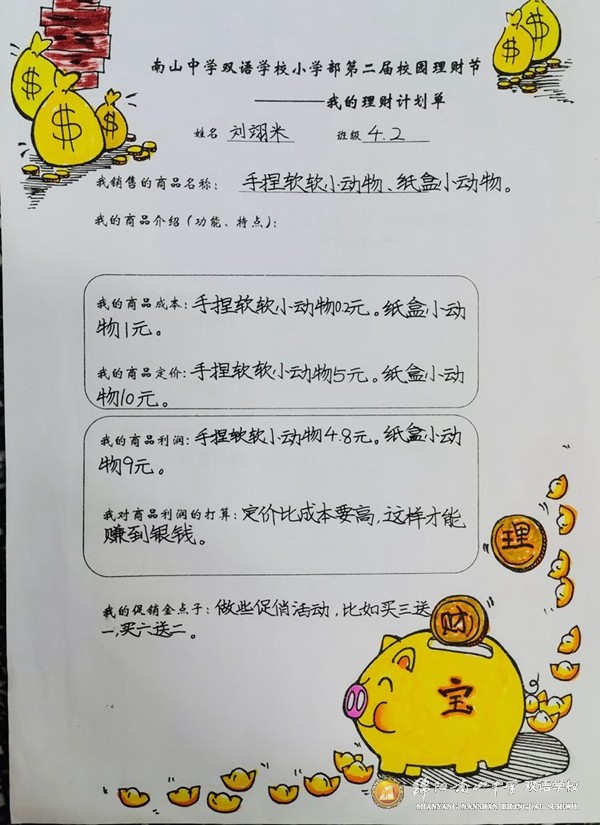 南山中学双语学校小学部第二届校园理财节
————我的理财计划单
姓名 刘翊米 班级 4.2
我销售的商品名称: 手捏软软小动物、纸盒小动物。
我的商品介绍(功能、特点):
我的商品成本:手捏软软小动物0.2元。纸盒小动
物1元。
我的商品定价:手捏软软小动物5元。纸盒小动
物10元。
我的商品利润:手捏软软小动物4.8元。纸盒小动
物9元。
我对商品利润的打算:定价比成本要高,这样才能
赚到银钱。
我的促销金点子:做些促俏活动,比如买三送
一,买六送二。
理
财
宝
绵阳南山中学双语学校
MIANYANG NANSHAN BILINGUAL SCHOOL